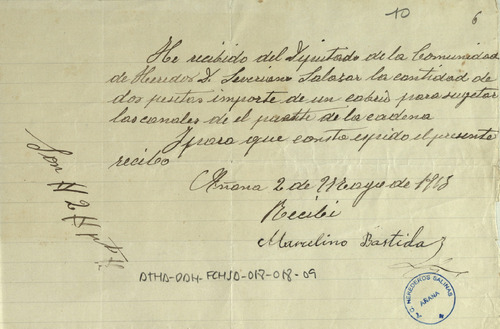 10
6
He recibido del Diputado de la Comunidad
de Heredos D. Severiano Salazar la cantidad de
dos pesetas importe de un cabrio para sugetar
las canales de el puente de la cadena
Y para que conste espido el presente
recibo
Añana 2 de Mayo de 1913
Recibí
Marcelino Bastida
Son
ATHA-DAH-FCHSD-018-018-09
HEREDEROS SALINAS
AÑANA